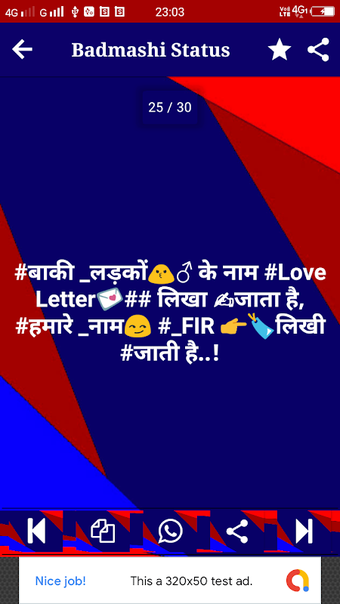 4G G 23:03 VoLTE 4G1
Badmashi Status
25 / 30
#बाकी _लड़कों🙆♂ के नाम #Love
Letter💌## लिखा ✍जाता है,
#हमारे _नाम😏 #_FIR 👉🏷लिखी
#जाती है..!
Nice job! This a 320x50 test ad.